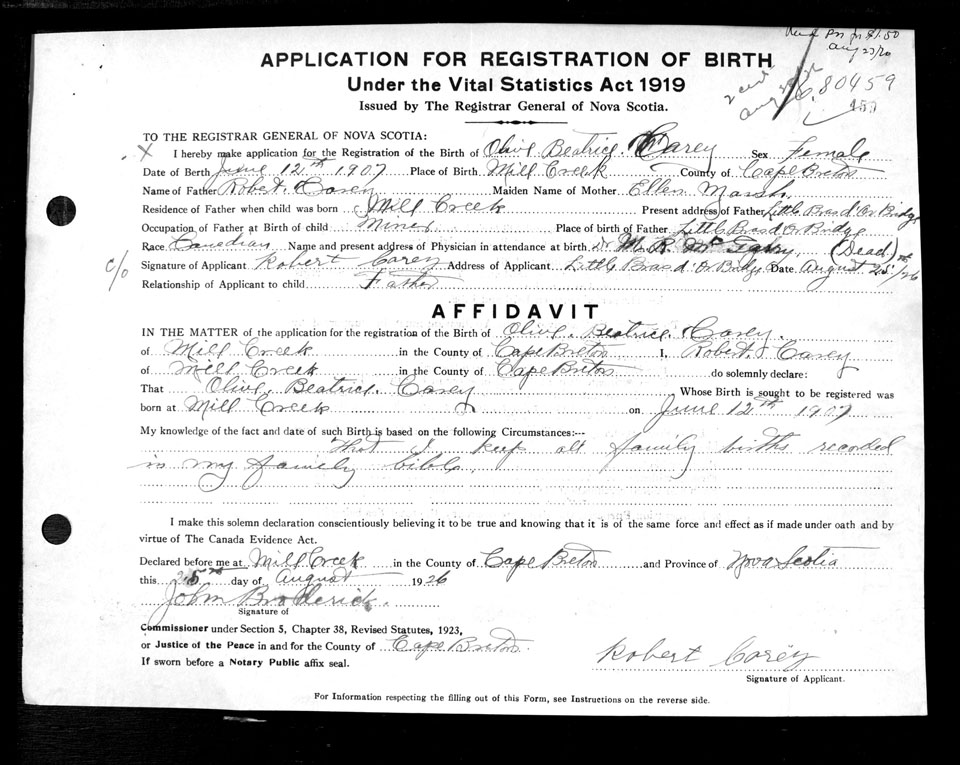 $1.50
APPLICATION FOR REGISTRATION OF BIRTH
Under the Vital Statistics Act 1919
80459
Issued by The Registrar General of Nova Scotia.
159
TO THE REGISTRAR GENERAL OF NOVA SCOTIA:
X I hereby make application for the Registration of the Birth of Olive Beatrice Carey Sex Female
Date of Berth June 12th 1907 Place of Birth Mill Creek County of Cape Breton
Name of Father Robert Carey Maiden Name of Mother Ellen Marsh
Residence of Father when child was born Mill Creek Present address of Father Little Bras d'Or Bridge
Occupation of Father at Birth of child Miner Place of birth of Father Little Bras d'Or Bridge
Race Canadian Name and present address of Physician in attendance at birth Dr M. R. (Dead)
c/o Signature of Applicant Robert Carey Address of Applicant Little Bras d'Or Bridge Date August 25th/26
Relationship of Applicant to child Father
AFFIDAVIT
IN THE MATTER of the application for the registration of the Birth of Olive Beatrice Carey
of Mill Creek in the County of Cape Breton I, Robert Carey
of Mill Creek in the County of Cape Breton do solemnly declare:
That Olive Beatrice Carey Whose Birth is sought to be registered was
born at Mill Creek on June 12th 1907
My knowledge of the fact and date of such Birth is based on the following Circumstances:--
That I keep all family births recorded
in my family bible.
I make this solemn declaration conscientiously believing it to be true and knowing that it is of the same force and effect as if made under oath and by
virtue of The Canada Evidence Act.
Declared before me at Mill Creek in the County of Cape Breton and Province of Nova Scotia
this 25th day of August 1926
John Broderick
Signature of
Commissioner under Section 5, Chapter 38, Revised Statutes, 1923,
or Justice of the Peace in and for the County of Cape Breton
If sworn before a Notary Public affix seal.
Robert Carey
Signature of Applicant.
For Information respecting the filling out of this Form, see Instructions on the reverse side.